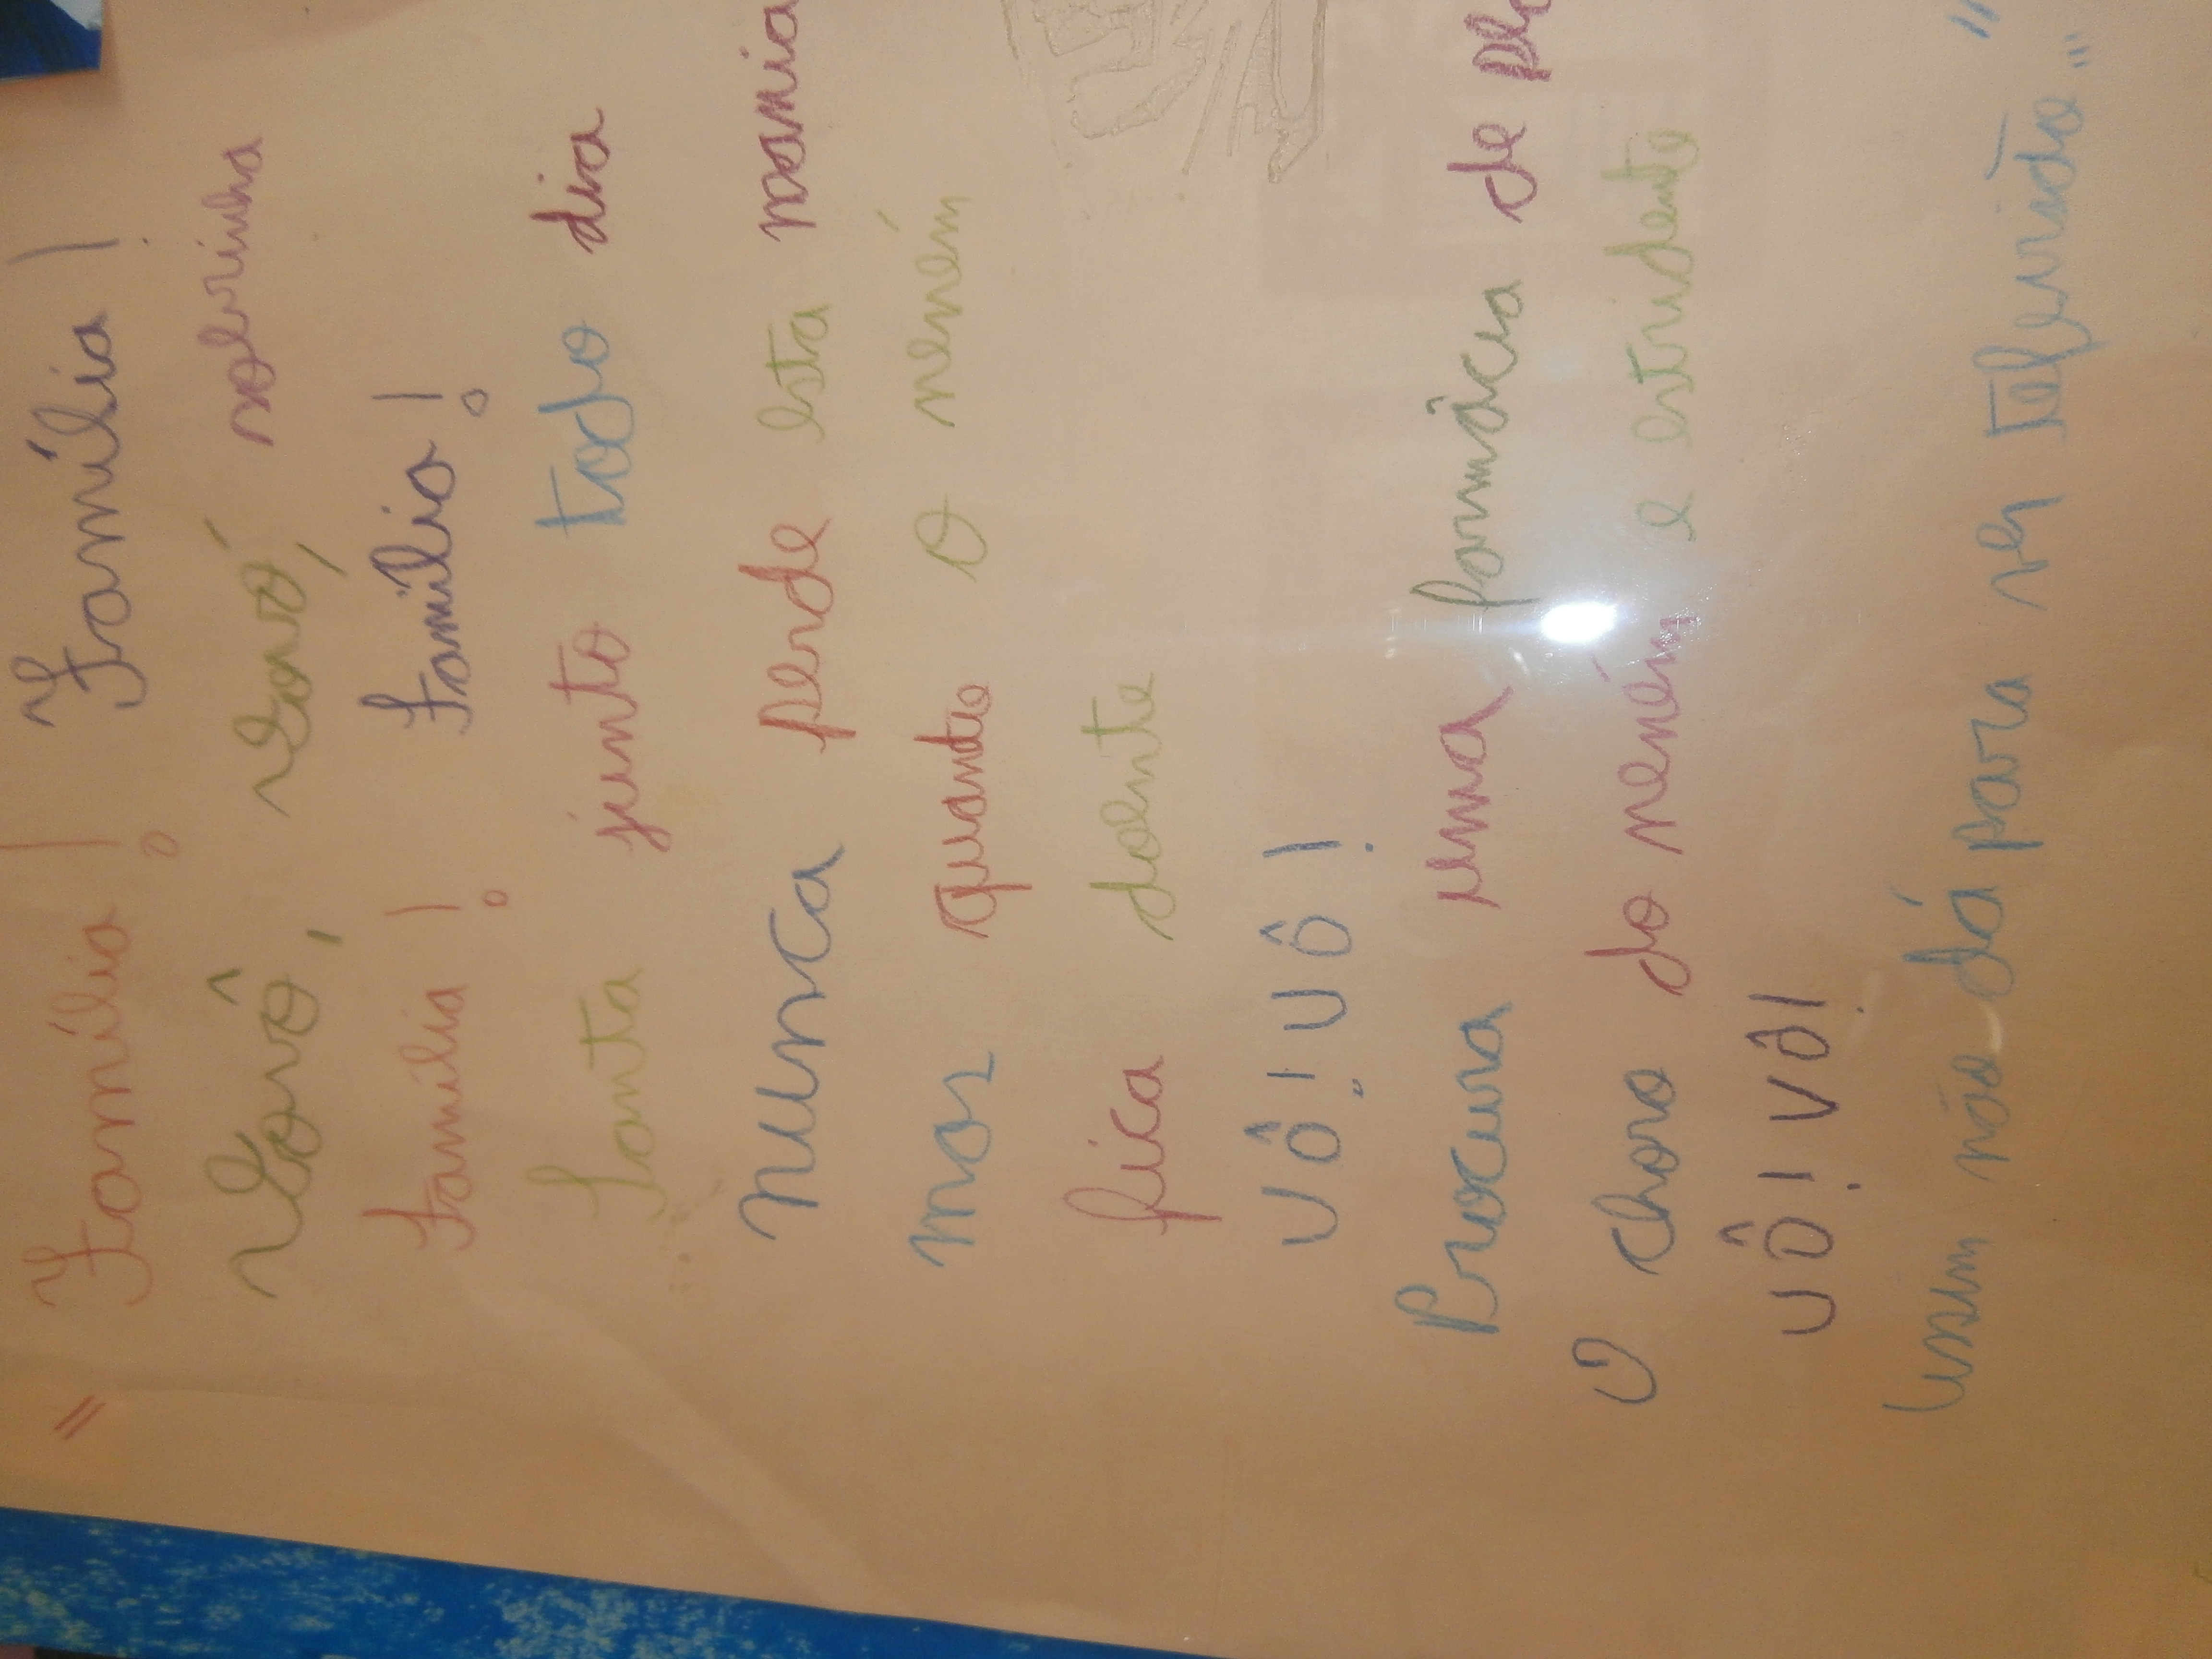 " Família! Família!
Vovô, vovó, sobrinha
família! família!
Janta junto todo dia
nunca perde esta mania
mas quando o neném
fica doente
UÔ! UÔ!
Procura uma farmácia de
O choro do neném e estridente
UÔ! VÔ!
assim não dá para ver televisão"...